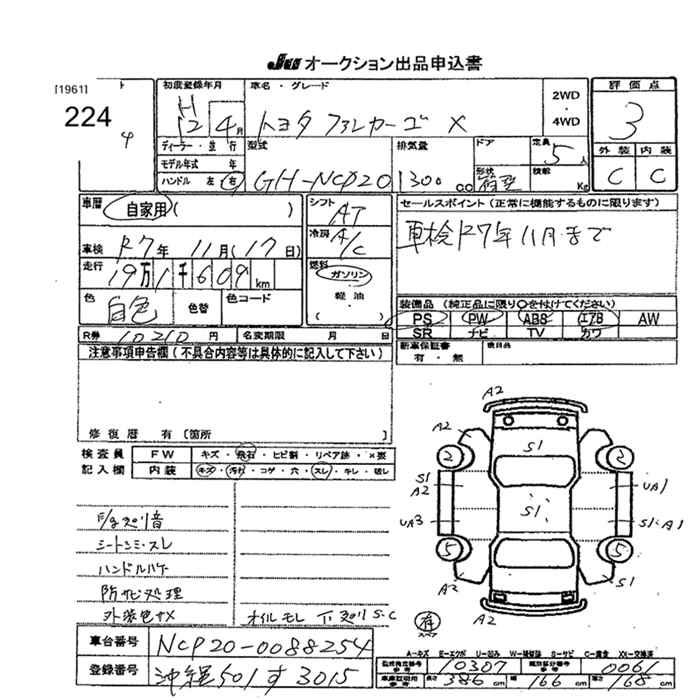 JU オークション出品申込書
[1961]
224
4
初度登録年月
H 12 4月
車名・グレード
トヨタ ファンカーゴ X
2WD・4WD
評価点
3
ディーラー・並行
モデル年式 年
ハンドル 左 右
型式
GH-NCP20
排気量
1300 cc
ドア
形状 箱型
定員 5人
積載 Kg
外装 内装
C C
車歴 自家用( )
シフト AT
セールスポイント(正常に機能するものに限ります)
車検R7年11月まで
車検 R7年 11月(17日)
冷房 A/C
走行 19万1千609km
燃料 ガソリン・軽油・
色 白色 色替 色コード
装備品(純正品に限り○を付けてください)
PS PW ABS エアB AW
SR ナビ TV カワ
R券 10210円 名変期限 月 日
新車保証書 有・無
注意事項申告欄(不具合内容等は具体的に記入して下さい)
修復歴 有〔箇所 〕
検査員記入欄
FW キズ・飛石・ヒビ割・リペア跡・×要
内装 キズ・汚れ・コゲ・穴・スレ・キレ・破レ
シートシミ・スレ
ハンドルハゲ
防サビ処理
外装色サメ
オイルモレ 下廻りS・C
A2
A2 A2
S1
2 2
S1 A2
UA1
S1
UA3
S1・A1
5 5
S1
A2
車台番号 NCP20-0088254
登録番号 沖縄501す3015
A-キズ E-エクボ U-凹み W-補修跡 S-サビ C-腐食 XX-交換済
型式指定番号 10307 類別区分番号 0061
車庫証明用参考 長さ 386cm 幅 166cm 高さ 168cm